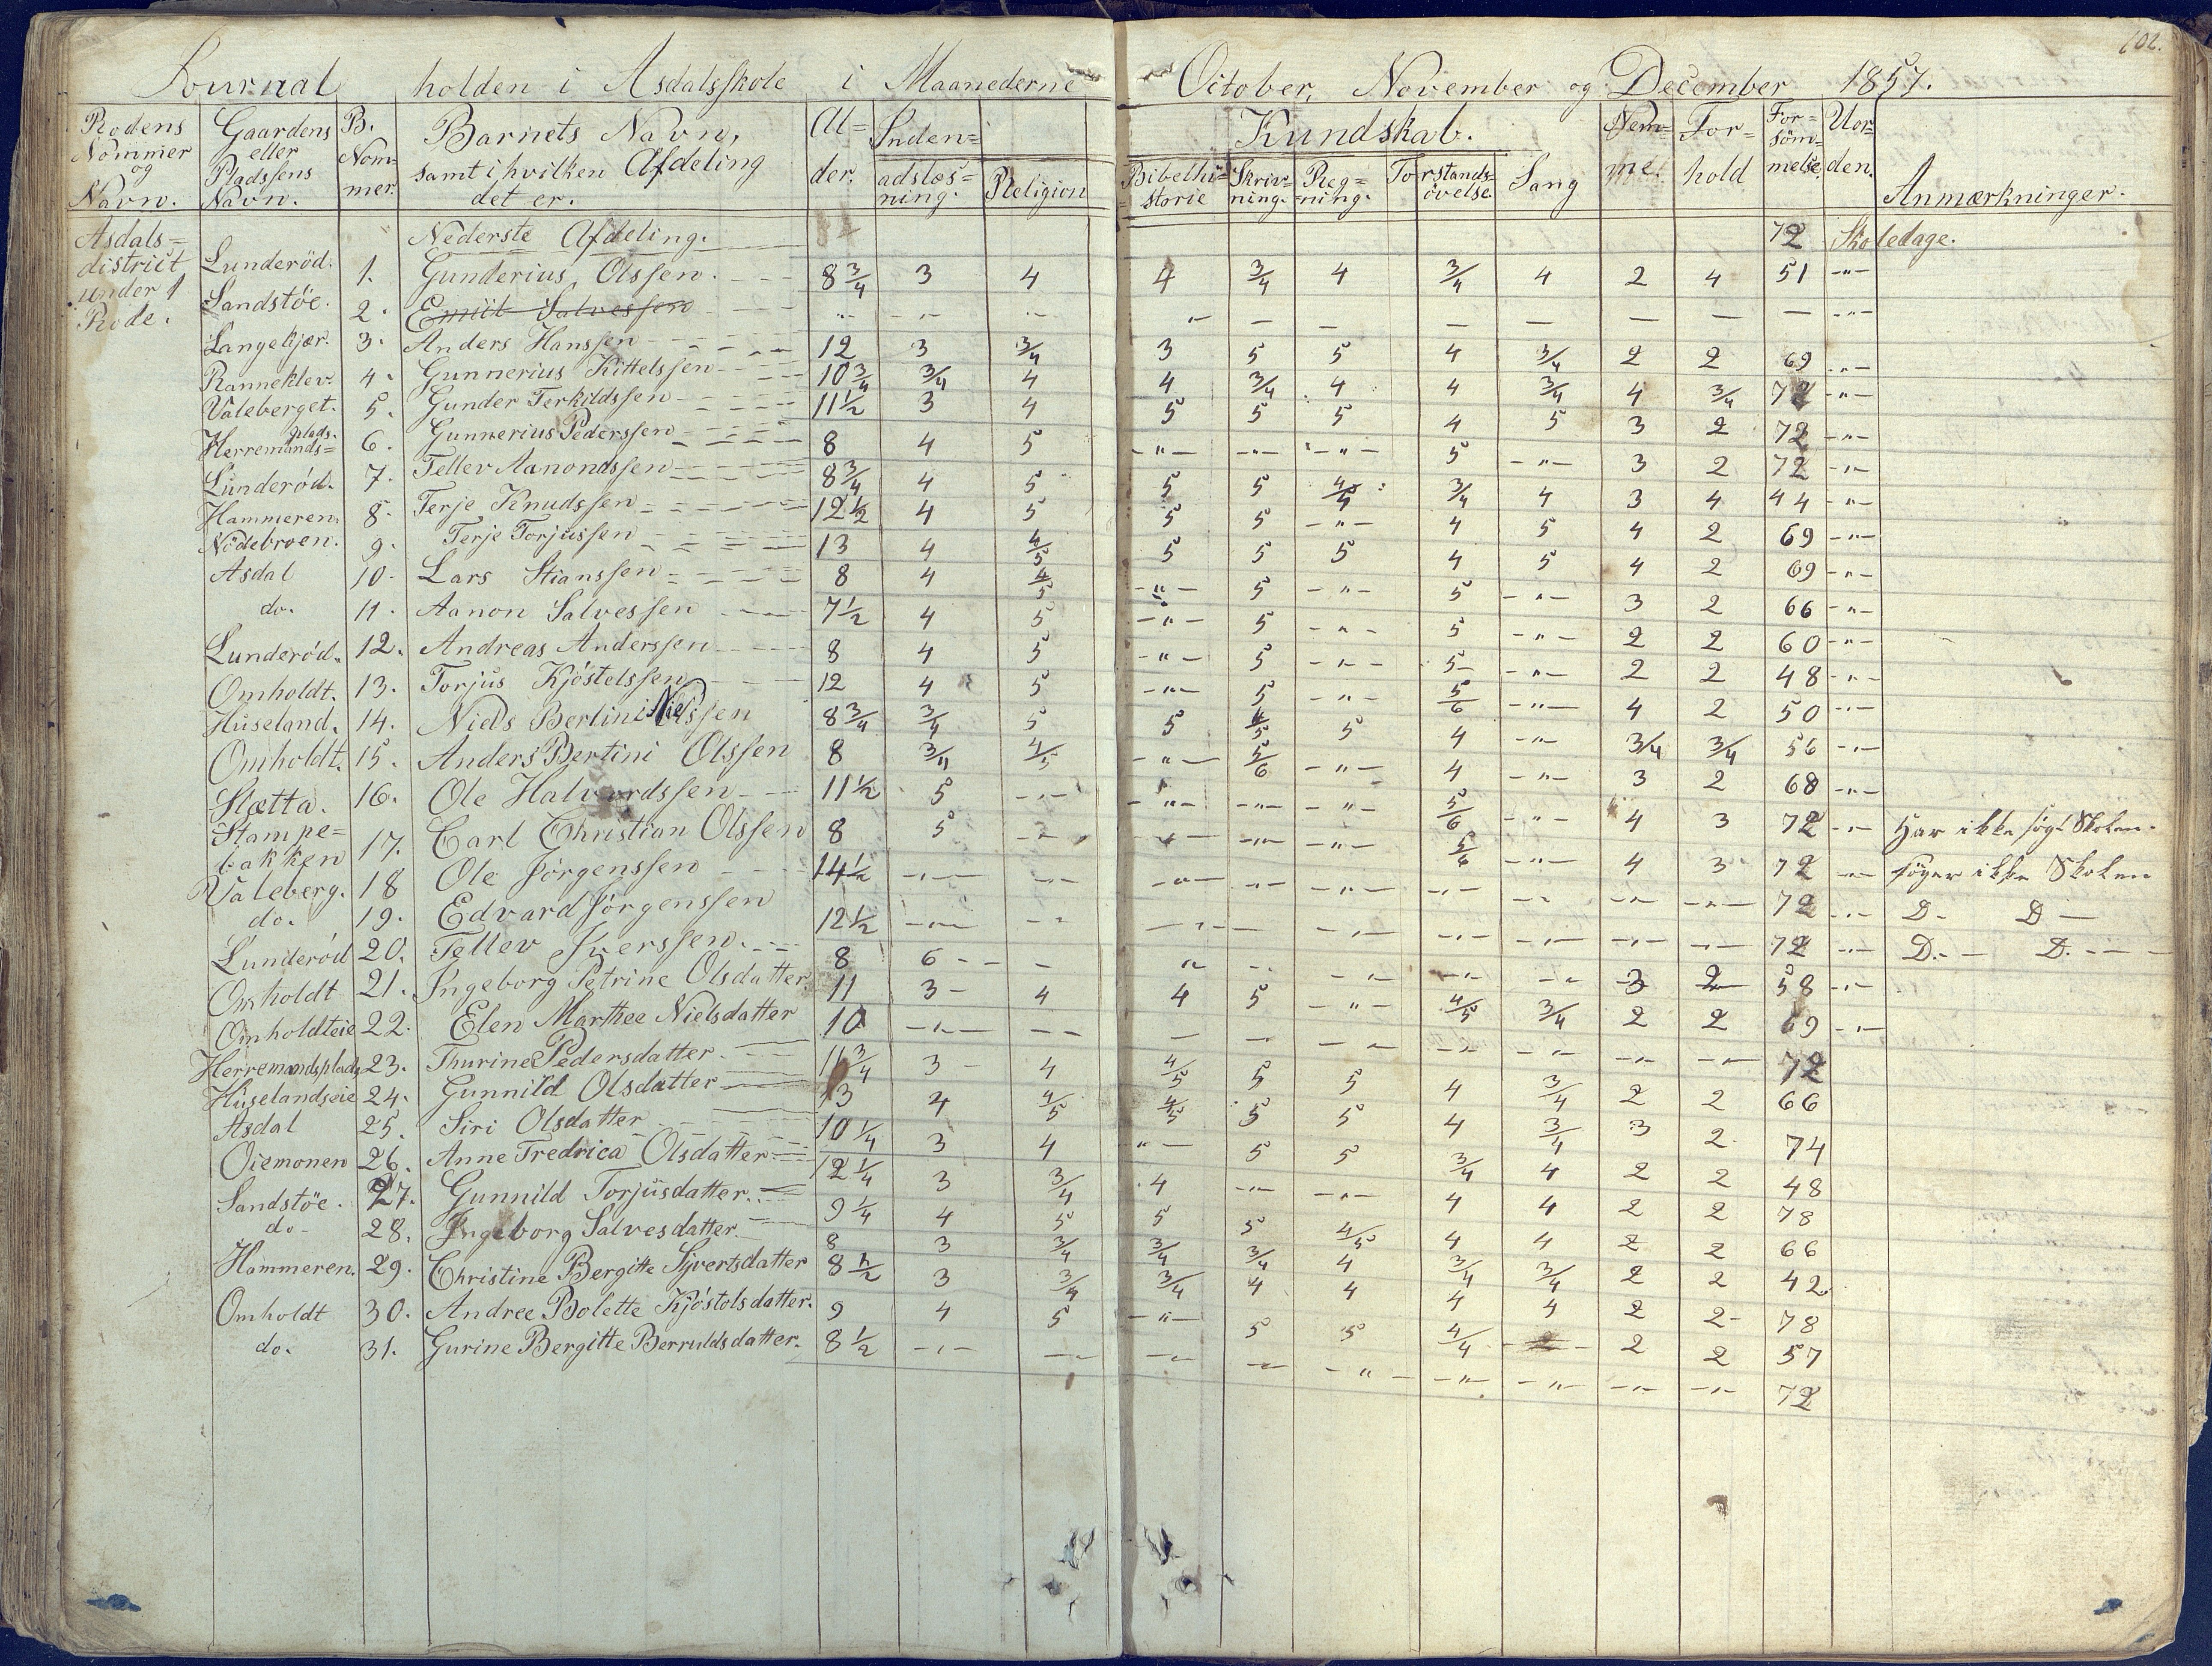 102.
Journal holden i Asdalsskole i Maanederne October, November og December 1857.
Rodens Nommer og Navn. | Gaardens eller Pladssens Navn. | B. Nommer. | Barnets Navn, samt i hvilken Afdeling det er. | Alder. | Indenadslæsning. | Religion | Kundskab. Bibelhistorie | Skrivning. | Regning. | Forstandsövelse. | Sang | Nemme. | Forhold | Forsömmelse. | Uorden. | Anmærkninger.
Asdals= district under 1 Rode.
Nederste Afdeling. 72 Skoledage.
Lunderöd. 1. Gunderius Olssen. 8 3/4 3 4 4 3/4 4 3/4 4 2 4 51 -"-
Sandstöe. 2. Emiit Salvessen -"-
Langekjær. 3. Anders Hanssen 12 3 3/4 3 5 5 4 3/4 2 2 69 -"-
Ranneklev. 4. Gunnerius Kittelssen 10 3/4 3/4 4 4 3/4 4 4 3/4 4 3/4 72 -"-
Valeberget. 5. Gunder Terkildssen 11 1/2 3 4 5 5 5 4 5 3 2 72 -"-
Herremands=plads. 6. Gunnerius Pederssen 8 4 5 -"- -"- -"- 5 -"- 3 2 72 -"-
Lunderöd. 7. Tellev Aanondssen 8 3/4 4 5 5 5 4/5 3/4 4 3 4 44 -"-
Hammeren. 8. Terje Knudssen 12 1/2 4 5 5 5 -"- 4 5 4 2 69 -"-
Nödebroen. 9. Terje Torjussen 13 4 4/5 5 5 5 4 5 4 2 69 -"-
Asdal 10. Lars Stianssen 8 4 4/5 -"- 5 -"- 5 -"- 3 2 66 -"-
do. 11. Aanon Salvessen 7 1/2 4 5 -"- 5 -"- 5 -"- 2 2 60 -"-
Lunderöd. 12. Andreas Anderssen 8 4 5 -"- 5 -"- 5 -"- 2 2 48 -"-
Omholdt. 13. Torjus Kjöstelssen 12 4 5 -"- 5 -"- 5/6 -"- 4 2 50 -"-
Huseland. 14. Niels Bertini Nielssen 8 3/4 3/4 5 5 4/5 5 4 -"- 3/4 3/4 56 -"-
Omholdt. 15. Anders Bertini Olssen 8 3/4 4/5 -"- 5/6 -"- 4 -"- 3 2 68 -"-
Slætta. 16. Ole Halvordssen 11 1/2 5 -"- -"- -"- -"- 5/6 -"- 4 3 72 -"- Har ikke sögt Skolen.
Stampe=bakken 17. Carl Christian Olssen 8 5 -"- -"- -"- -"- 5/6 -"- 4 3 72 -"- söger ikke Skolen
Valeberg. 18 Ole Jörgenssen 14 1/2 -"- -"- -"- -"- -"- -"- -"- -"- -"- 72 -"- D. D
do. 19. Edvard Jörgenssen 12 1/2 -"- -"- -"- -"- -"- -"- -"- -"- 72 -"- D. D.
Lunderöd 20. Tellev Iverssen. 8 6 - - " -"- -"- -"- -"- 3 2 58 -"-
Omholdt 21. Ingeborg Petrine Olsdatter 11 3 4 4 5 -"- 4/5 3/4 2 2 69 -"-
Omholdteie 22. Elen Marthee Nielsdatter 10 -"- -"- 72
Herremandsplads 23. Thurine Pedersdatter. 11 3/4 3 4 4/5 5 5 4 3/4 2 2 66
Huselandseie 24. Gunnild Olsdatter 13 4 4/5 4/5 5 5 4 3/4 3 2 74
Asdal 25. Siri Olsdatter 10 1/4 3 4 "- 5 5 3/4 4 2 2 48
Oiemonen 26. Anne Fredrica Olsdatter 12 1/4 3 3/4 4 -"- -"- 4 4 2 2 78
Sandstöe. 27. Gunnild Torjusdatter. 9 1/4 4 5 5 5 4/5 4 4 2 2 66
do 28. Ingeborg Salvesdatter. 8 3 3/4 3/4 3/4 4 3/4 3/4 2 2 42
Hammeren. 29. Christine Bergitte Syvertsdatter 8 1/2 3 3/4 3/4 4 4 4 4 2 2 78
Omholdt 30. Andree Bolette Kjöstolsdatter. 9 4 5 -"- 5 5 4/4 2 2 57
do. 31. Gurine Bergitte Berruldsdatter. 8 1/2 -"- -"- -"- -"- -"- -"- -"- -"- -"- 72